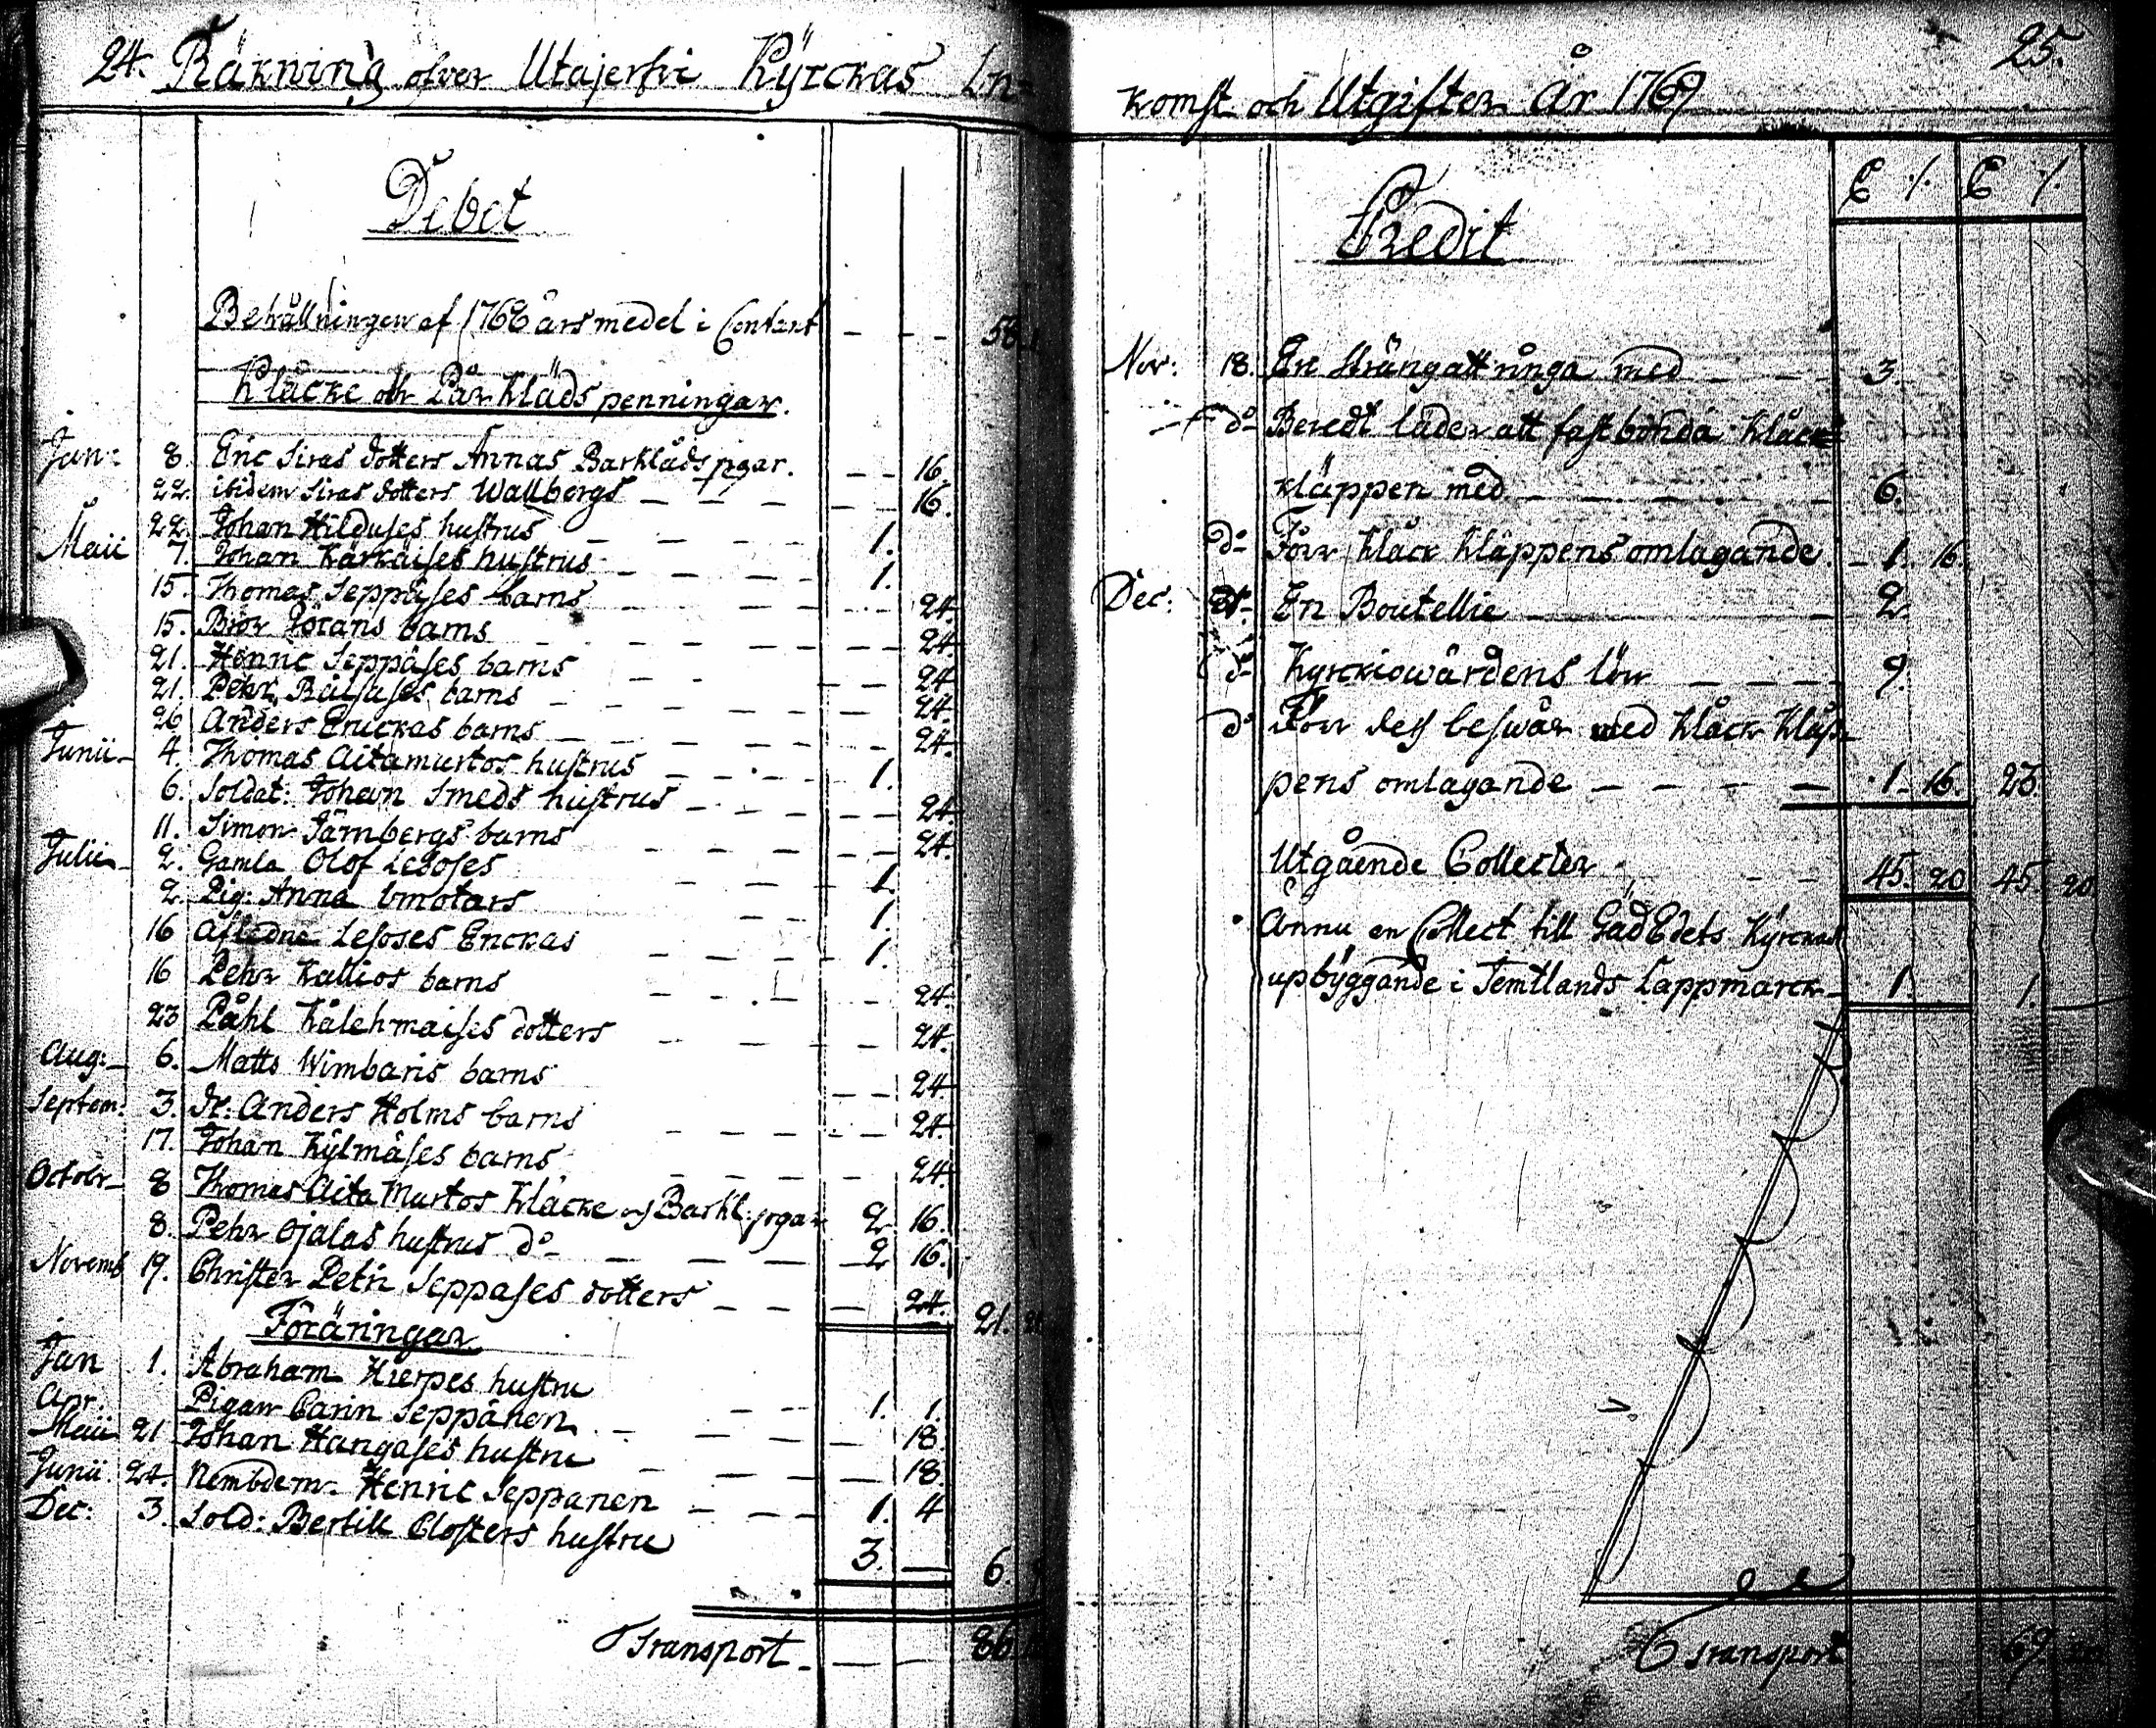 24. Räkning öfver Utajerfvi Kÿrckas In=
Debet
Behållningen af 1768 års medel i Contant - - - 58.
Kläcke och Bårkläds penningar.
Jan: 8. Eric Siras dotters Annas Barkläds pgar. - - 16
22. ibidem Siras dotters Wallbergs - - - 16.
22. Johan Hilduses hustrus - - - 1.
Maii 7. Johan Karkaises hustrus - - - 1.
15. Thomas Seppäses barns - - - 24.
15. Biör Jörans barns - - - 24.
21. Henric Seppäses barns - - - 24.
21. Pehr barns - - - 24.
26 Anders Erickas barns - - - 24.
Junii - 4. Thomas Aitamurtos hustrus - - - 1.
6. Soldat: Johan Smeds hustrus - - - 24.
11. Simon Järnbergs barns - - - 24.
Julii - 2. Gamla Olof Lesoses - - - 1.
2. Pig: Anna - - - 1.
16 Afledne Lesoses Enckas - - - 1.
16 Pehr Kallios barns - - - 24.
23 Påhl Kålehmaises dotters - - - 24.
Aug: - 6. Matts Wimbaris barns - - 24.
Septem: 3. Dr: Anders Holms barns - - - 24.
17. Johan Kÿlmäses barns - - - 24.
Octobr - 8 Thomas Aita Murtos Kläcke och Barkl: pgar 2 16.
8. Pehr Ojalas hustrus do - - - 2 16.
Novemb 19. Christer Petri Seppases dotters - - - 24. 21.
Föräringar
Jan 1. Abraham Hierpes hustru - - 1. 1.
Apr. Pigan Carin Seppänen - - - 18.
Maii 21 Johan Hangases hustru - - - 18.
Junii 24. Nembdem. Henric Seppanen - - - 1. 4
Dec: 3. Sold: Bertill Closters hustru 3. — 6.
Transport - — — 86.
25.
komst och Utgifter År 1769
Credit
Nov: 18. En sträng att ringa med - - - 3.
do Beredt läder att fast binda Kläck=
kläppen med - - - 6.
do Förr kläck kläppens omlagande. - 1. 16.
Dec: En Boutellie - - - 2.
do Kyrckiowärdens lön - - - 9.
do Förr dess beswär med kläck kläp-
pens omlagande - - - 1. 16. 23.
Utgående Collecter - - - 45. 20 45. 20
Ännu en Collect till GädEdets Kÿrckas
upbÿggande i Jemtlands Lappmarck - 1. 1.
Transport 69